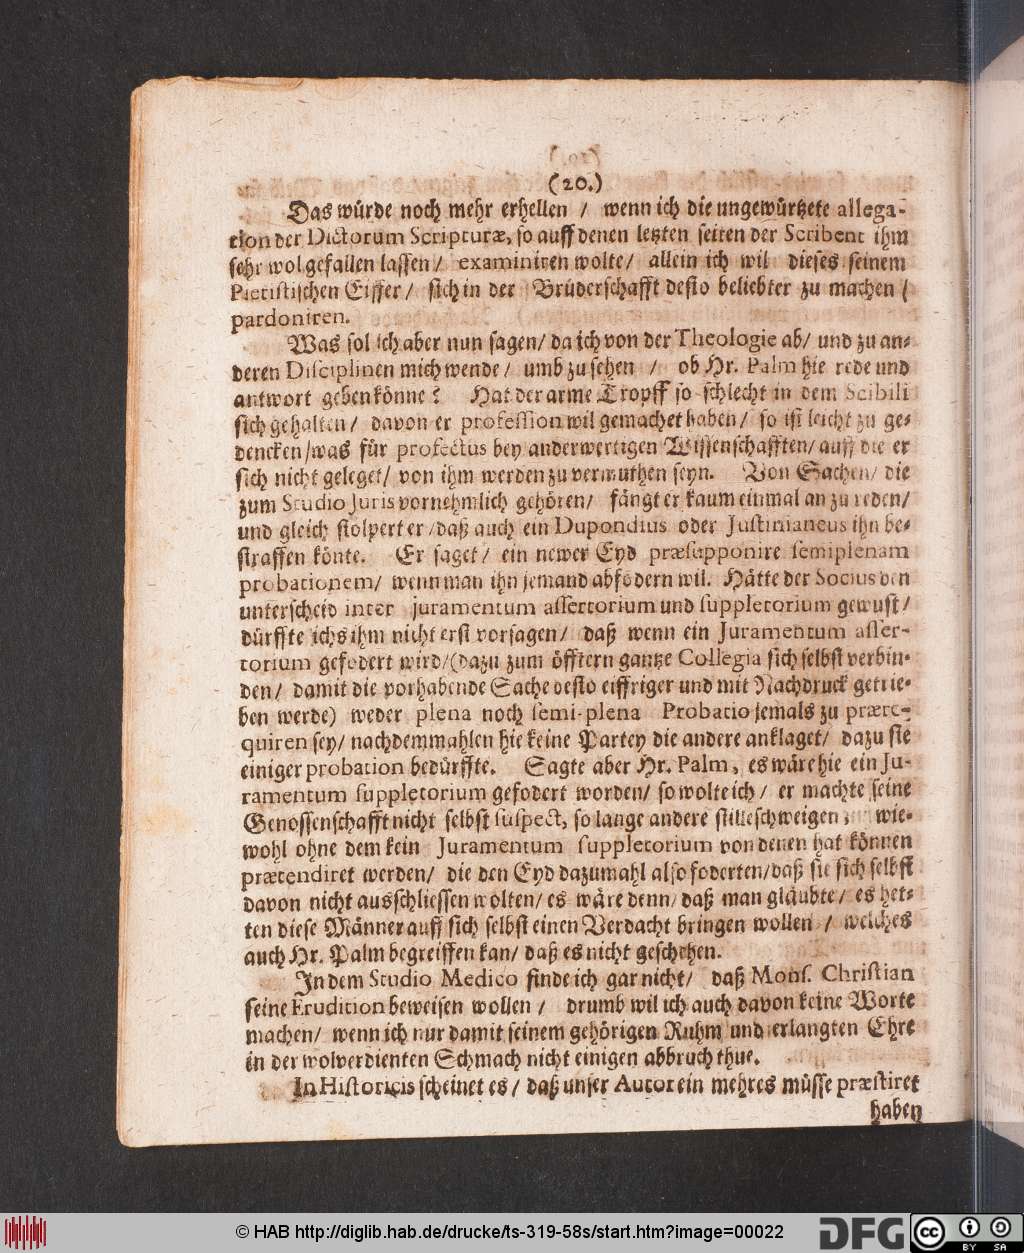 (20.)
Das würde noch mehr erhellen / wenn ich die ungewürtzete allega-
tion der Dictorum Scripturæ, so auff denen letzten seiten der Scribent ihm
sehr wol gefallen lassen / examiniren wolte / allein ich wil dieses seinem
Pietistischen Eiffer / sich in der Brüderschafft desto beliebter zu machen /
pardoniren.
Was sol ich aber nun sagen / da ich von der Theologie ab / und zu an-
deren Disciplinen mich wende / umb zu sehen / ob Hr. Palm hie rede und
antwort geben könne? Hat der arme Tropff so schlecht in dem Scibili
sich gehalten / davon er profession wil gemachet haben / so ist leicht zu ge-
dencken / was für profectus bey anderwertigen Wissenschafften / auff die er
sich nicht geleget / von ihm werden zu vermuthen seyn. Von Sachen / die
zum Studio Juris vornehmlich gehören / fängt er kaum einmal an zu reden /
und gleich stolpert er / daß auch ein Dupondius oder Justinianeus ihn be-
straffen könte. Er saget / ein newer Eyd præsupponire semiplenam
probationem / wenn man ihn jemand abfodern wil. Hätte der Socius den
unterscheid inter juramentum assertorium und suppletorium gewust /
dürffte ichs ihm nicht erst vorsagen / daß wenn ein Juramentum asser-
torium gefodert wird / (dazu zum öfftern gantze Collegia sich selbst verbin-
den / damit die vorhabende Sache desto eiffriger und mit Nachdruck getrie-
ben werde) weder plena noch semi-plena Probatio jemals zu prære-
quiren sey / nachdemmahlen hie keine Partey die andere anklaget / dazu sie
einiger probation bedürffte. Sagte aber Hr. Palm, es wäre hie ein Ju-
ramentum suppletorium gefodert worden / so wolte ich / er machte seine
Genossenschafft nicht selbst suspect, so lange andere stilleschweigen; wie-
wohl ohne dem kein Juramentum suppletorium von denen hat können
prætendiret werden / die den Eyd dazumahl also foderten / daß sie sich selbst
davon nicht ausschliessen wolten / es wäre denn / daß man gläubte / es het-
ten diese Männer auff sich selbst einen Verdacht bringen wollen / welches
auch Hr. Palm begreiffen kan / daß es nicht geschehen.
In dem Studio Medico finde ich gar nicht / daß Mons. Christian
seine Erudition beweisen wollen / drumb wil ich auch davon keine Worte
machen / wenn ich nur damit seinem gehörigen Ruhm und erlangten Ehre
in der wolverdienten Schmach nicht einigen abbruch thue.
In Historicis scheinet es / daß unser Autor ein mehres müsse præstiret
haben
© HAB http://diglib.hab.de/drucke/ts-319-58s/start.htm?image=00022
DFG
cc
BY SA